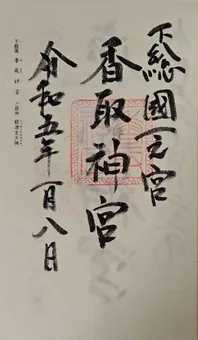 下総國一之宮
香取神宮
令和五年一月八日
下総國 香取神宮
経津主大神